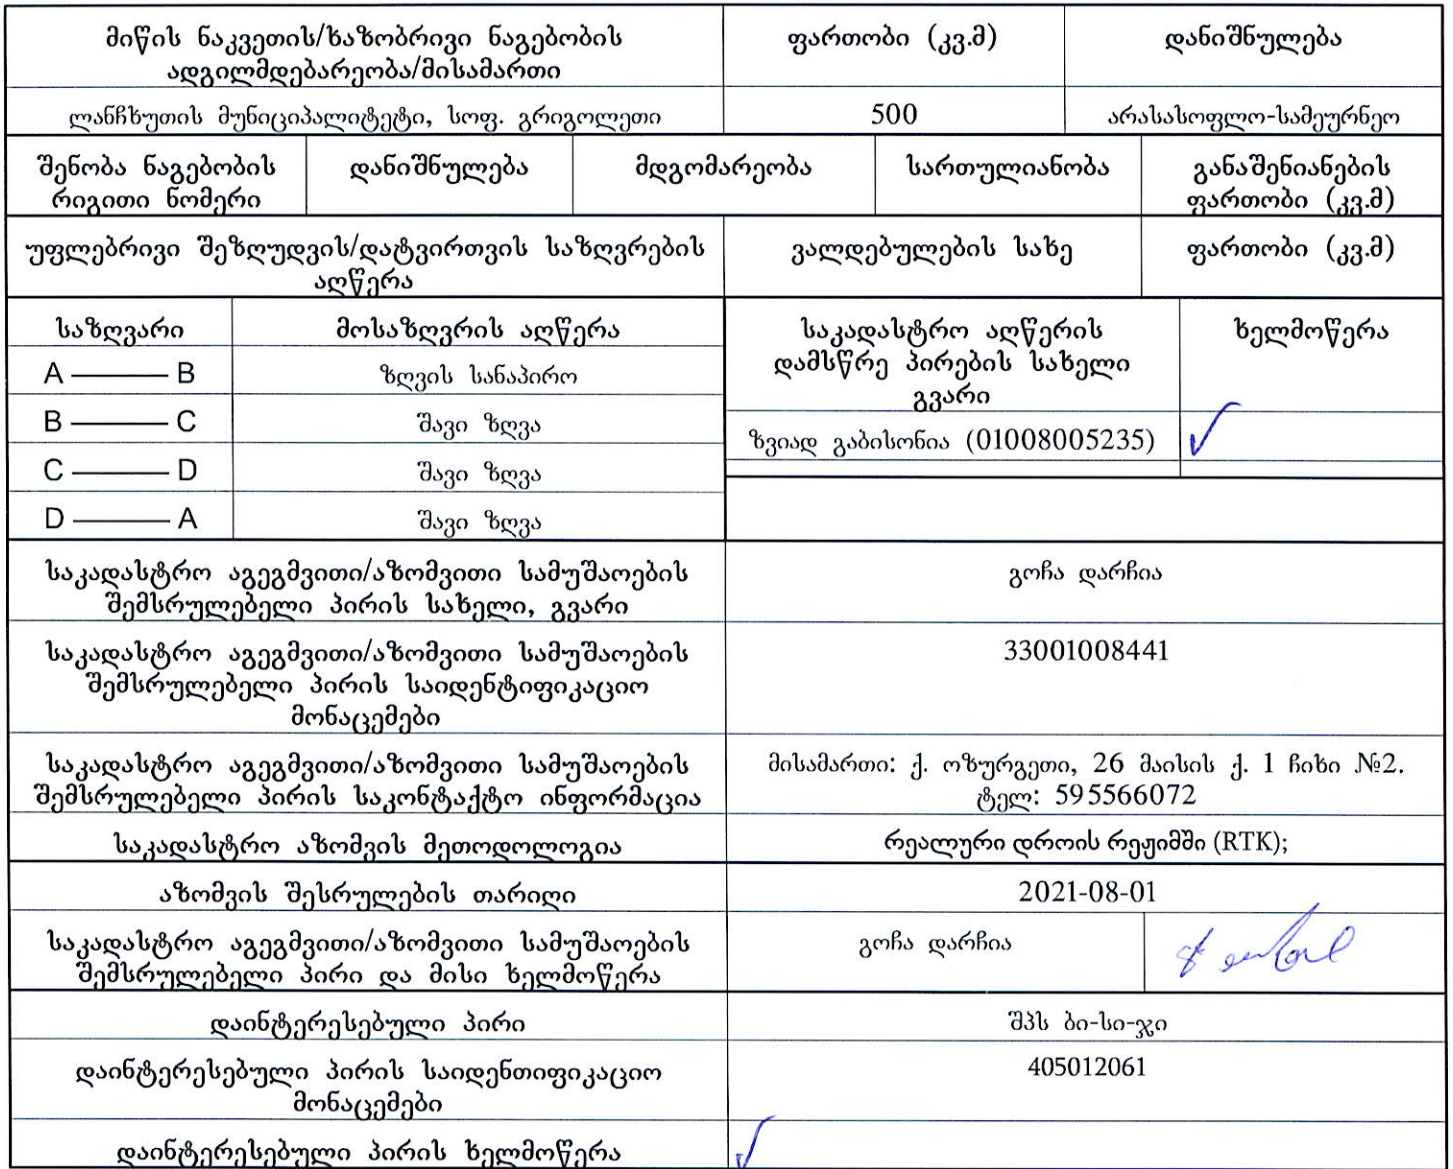 მიწის ნაკვეთის/ხაზობრივი ნაგებობის
ადგილმდებარეობა/მისამართი
ფართობი (კვ.მ)
დანიშნულება
ლანჩხუთის მუნიციპალიტეტი, სოფ. გრიგოლეთი
500
არასასოფლო-სამეურნეო
შენობა ნაგებობის
რიგითი ნომერი
დანიშნულება
მდგომარეობა
სართულიანობა
განაშენიანების
ფართობი (კვ.მ)
უფლებრივი შეზღუდვის/დატვირთვის საზღვრების
აღწერა
ვალდებულების სახე
ფართობი (კვ.მ)
საზღვარი
მოსაზღვრის აღწერა
A ——— B
ზღვის სანაპირო
B ——— C
შავი ზღვა
C ——— D
შავი ზღვა
D ——— A
შავი ზღვა
საკადასტრო აღწერის
დამსწრე პირების სახელი
გვარი
ხელმოწერა
ზვიად გაბისონია (01008005235)
საკადასტრო აგეგმვითი/აზომვითი სამუშაოების
შემსრულებელი პირის სახელი, გვარი
გოჩა დარჩია
საკადასტრო აგეგმვითი/აზომვითი სამუშაოების
შემსრულებელი პირის საიდენტიფიკაციო
მონაცემები
33001008441
საკადასტრო აგეგმვითი/აზომვითი სამუშაოების
შემსრულებელი პირის საკონტაქტო ინფორმაცია
მისამართი: ქ. ოზურგეთი, 26 მაისის ქ. 1 ჩიხი №2.
ტელ: 595566072
საკადასტრო აზომვის მეთოდოლოგია
რეალური დროის რეჟიმში (RTK);
აზომვის შესრულების თარიღი
2021-08-01
საკადასტრო აგეგმვითი/აზომვითი სამუშაოების
შემსრულებელი პირი და მისი ხელმოწერა
გოჩა დარჩია
დაინტერესებული პირი
შპს ბი-სი-ჯი
დაინტერესებული პირის საიდენთიფიკაციო
მონაცემები
405012061
დაინტერესებული პირის ხელმოწერა